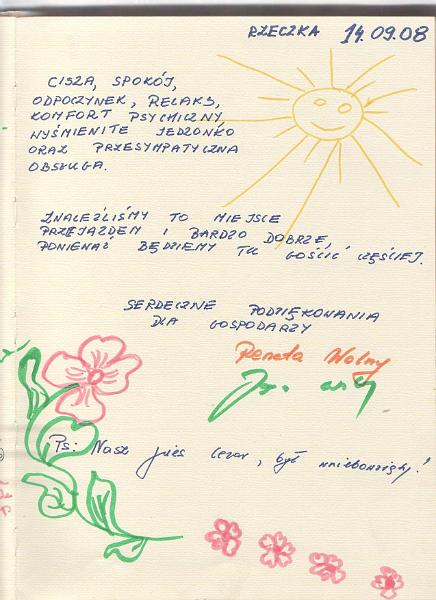 RZECZKA 14.09.08
CISZA, SPOKÓJ,
ODPOCZYNEK, RELAKS,
KOMFORT PSYCHICZNY,
WYŚMIENITE JEDZONKO
ORAZ PRZESYMPATYCZNA
OBSŁUGA.
ZNALEŹLIŚMY TO MIEJSCE
PRZEJAZDEM I BARDZO DOBRZE,
PONIEWAŻ BĘDZIEMY TU GOŚCIĆ CZĘŚCIEJ.
SERDECZNE PODZIĘKOWANIA
DLA GOSPODARZY
Renata Wolny
Ps: Nasz pies Cezar, był wniebowzięty!